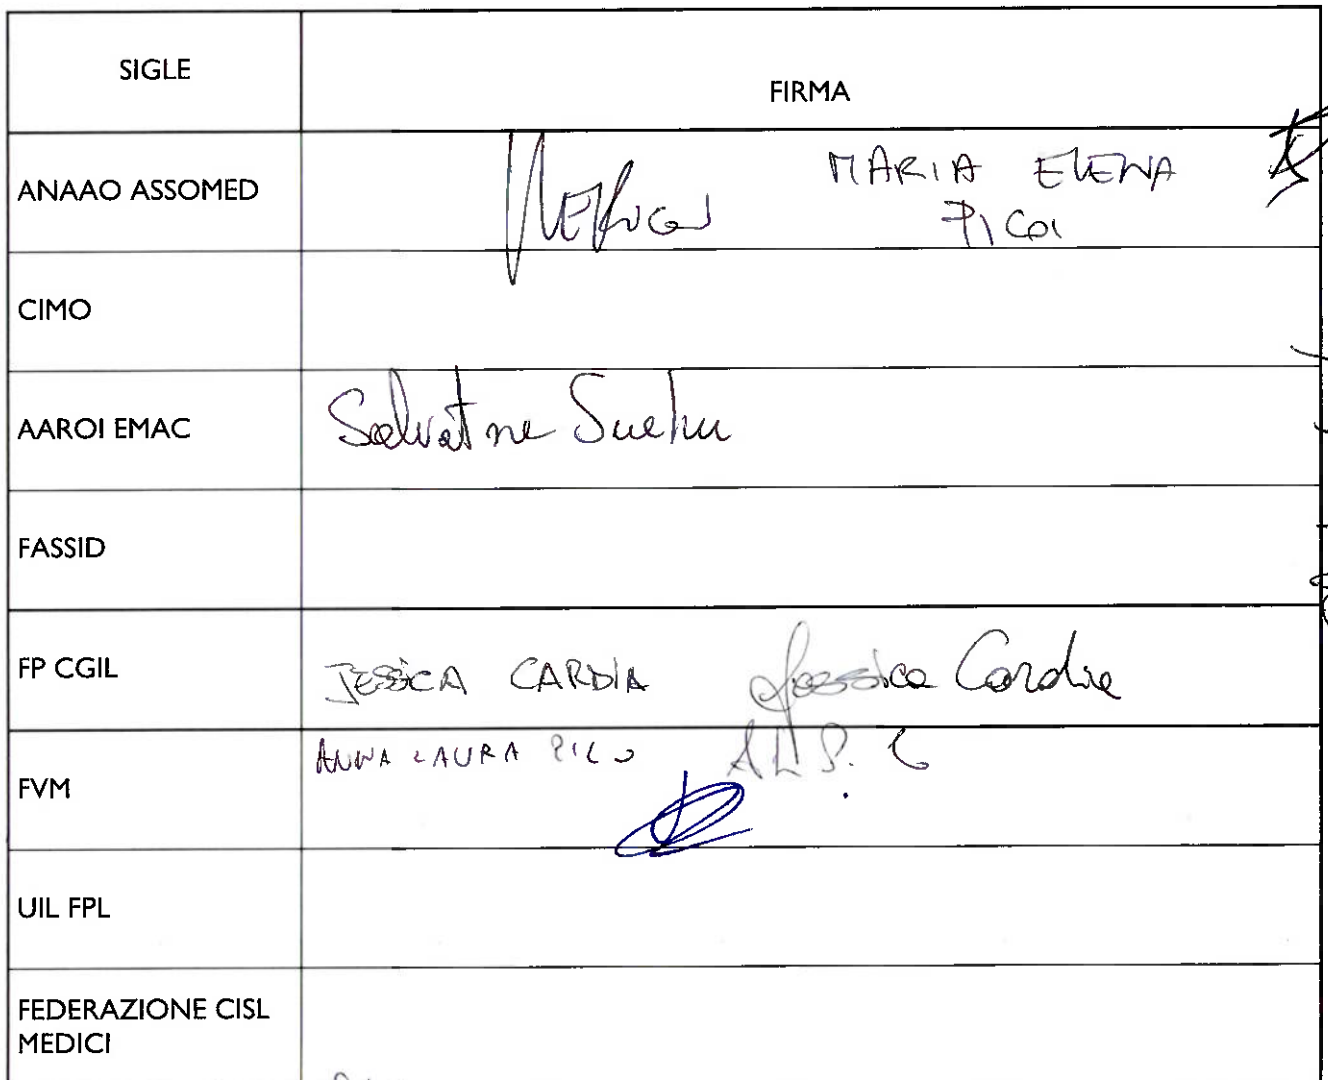 SIGLE
FIRMA
ANAAO ASSOMED
MARIA ELENA
CIMO
AAROI EMAC
Salvatore
FASSID
FP CGIL
JESSICA CARDIA Jessica Cardia
FVM
ANNA LAURA
UIL FPL
FEDERAZIONE CISL
MEDICI